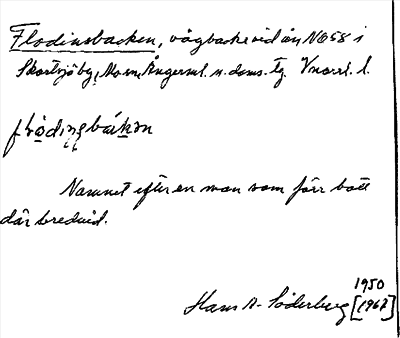 Flodinsbacken, vägbacke vid ån N058 i
Skortsjö by, Mo sn, Ångerml. n. doms. tg. Vnorrl. l.
flodinsbákan
Namnet efter en man som förr bott
där bredvid.
1950
Hans A. Söderberg [1967]